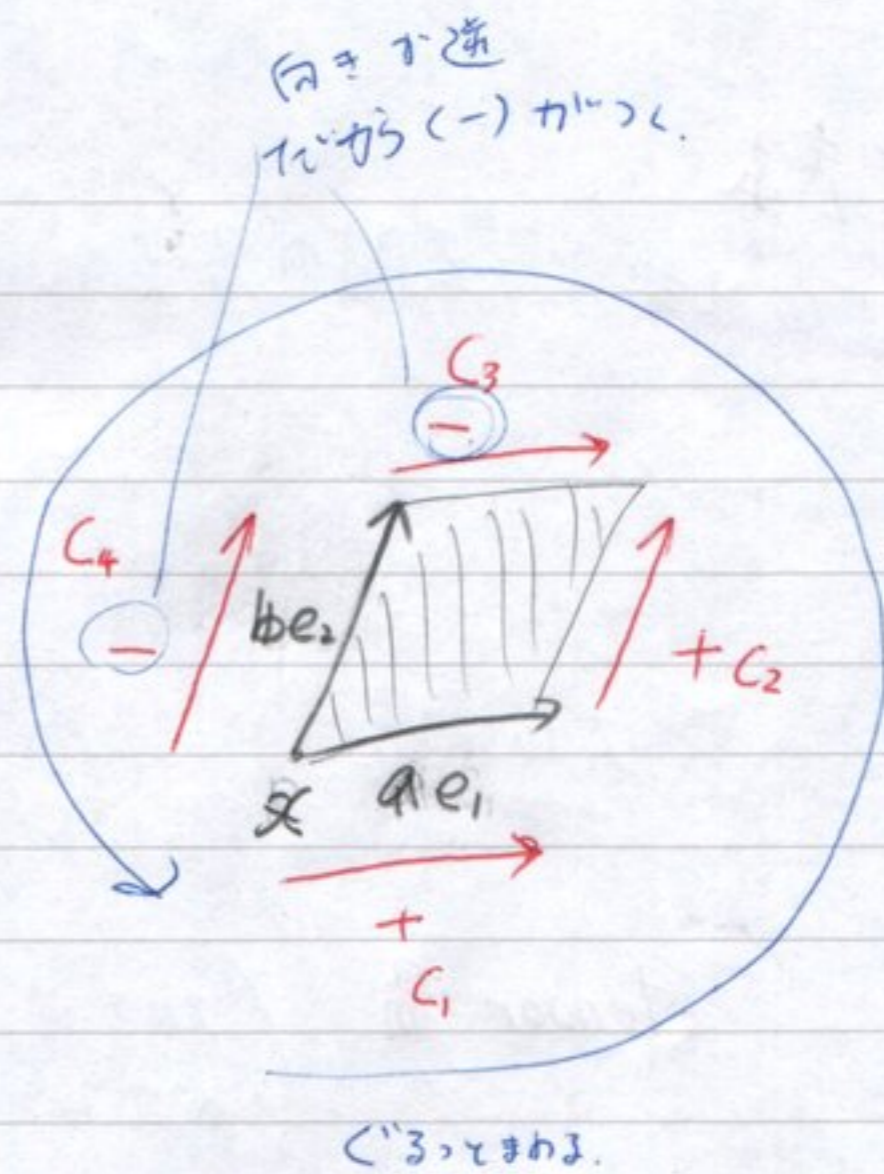 向きが逆
だから(-)がつく.
C₃
-
C₄
-
be₂
+ C₂
x
ae₁
+
C₁
ぐるっとまわる.